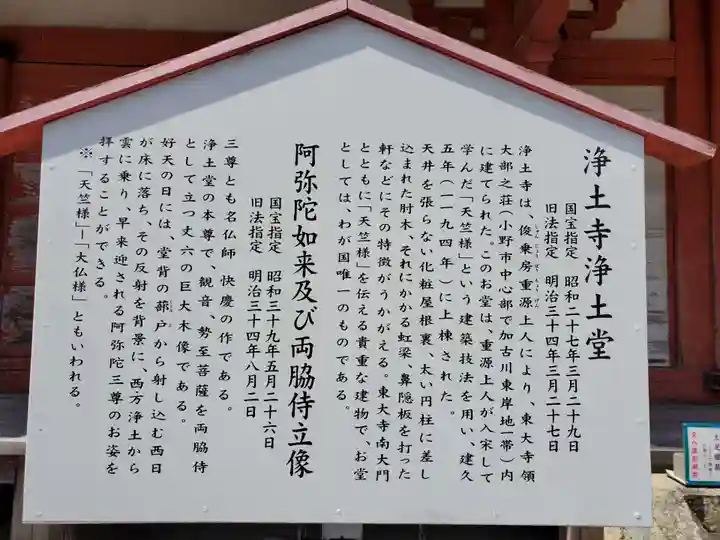 浄土寺浄土堂
国宝指定 昭和二十七年三月二十九日
旧法指定 明治三十四年三月二十七日
浄土寺は、俊乗房重源上人により、東大寺領
大部之荘(小野市中心部で加古川東岸地一帯)内
に建てられた。このお堂は、重源上人が入宋して
学んだ「天竺様」という建築技法を用い、建久
五年(一一九四年)に上棟された。
天井を張らない化粧屋根裏、太い円柱に差し
込まれた肘木、それにかかる虹梁、鼻隠板を打った
軒などにその特徴がうかがえる。東大寺南大門
とともに「天竺様」を伝える貴重な建物で、お堂
としては、わが国唯一のものである。
阿弥陀如来及び両脇侍立像
国宝指定 昭和三十九年五月二十六日
旧法指定 明治三十四年八月二日
三尊とも名仏師 快慶の作である。
浄土堂の本尊で、観音、勢至菩薩を両脇侍
として立つ丈六の巨大木像である。
好天の日には、堂背の蔀戸から射し込む西日
が床に落ち、その反射を背景に、西方浄土から
雲に乗り、早来迎される阿弥陀三尊のお姿を
拝することができる。
※「天竺様」−「大仏様」ともいわれる。